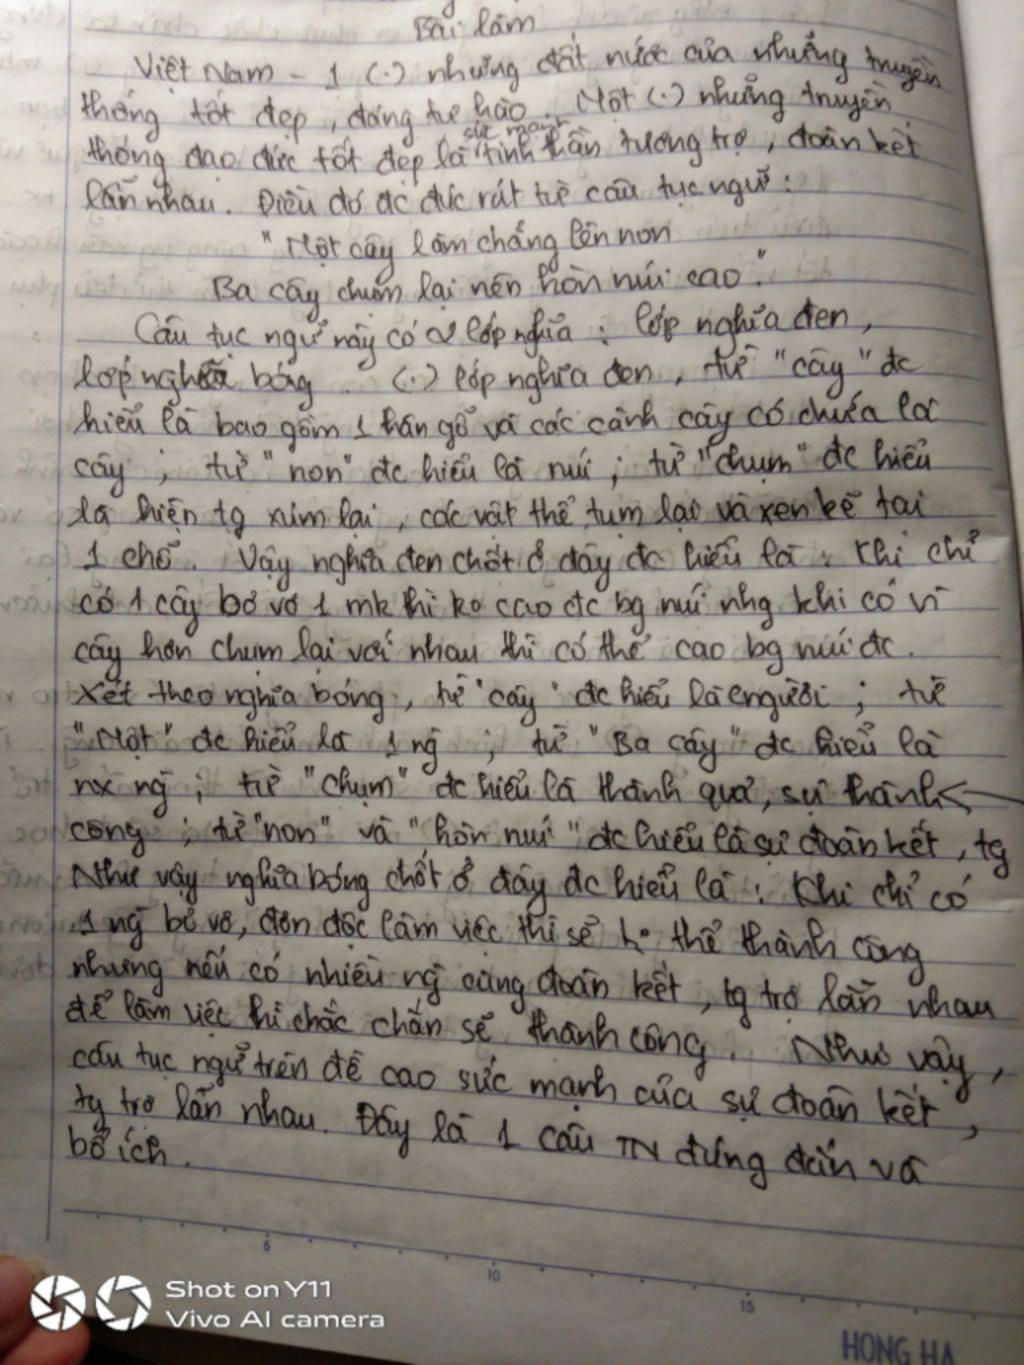 Bài làm
Việt Nam - 1 (.) những đất nước của những truyền
thống tốt đẹp, đáng tự hào. Một (.) những truyền
sức mạnh
thống đạo đức tốt đẹp là tinh thần tương trợ, đoàn kết
lẫn nhau. Điều đó đc đúc rút từ câu tục ngữ:
"Một cây làm chẳng lên non
Ba cây chụm lại nên hòn núi cao."
Câu tục ngữ này có 2 lớp nghĩa: lớp nghĩa đen,
lớp nghĩa bóng. (.) lớp nghĩa đen, từ "cây" đc
hiểu là bao gồm 1 thân gỗ và các cành cây có chứa lá
cây; từ "non" đc hiểu là núi; từ "chụm" đc hiểu
là hiện tg xúm lại, các vật thể tụm lại và xen kẽ tại
1 chỗ. Vậy nghĩa đen chốt ở đây đc hiểu là: Khi chỉ
có 1 cây bơ vơ 1 mk thì ko cao đc bg núi nhg khi có vì
cây hơn chụm lại với nhau thì có thể cao bg núi đc.
Xét theo nghĩa bóng, từ "cây" đc hiểu là người; từ
"Một" đc hiểu là 1 ng; từ "Ba cây" đc hiểu là
nx ng; từ "chụm" đc hiểu là thành quả, sự thành
công; từ "non" và "hòn núi" đc hiểu là sự đoàn kết, tg
Như vậy nghĩa bóng chốt ở đây đc hiểu là: Khi chỉ có
1 ng bơ vơ, đơn độc làm việc thì sẽ ko thể thành công
nhưng nếu có nhiều ng cùng đoàn kết, tg trợ lẫn nhau
để làm việc thì chắc chắn sẽ thành công. Như vậy,
câu tục ngữ trên đề cao sức mạnh của sự đoàn kết,
tg trợ lẫn nhau. Đây là 1 câu TN đúng đắn và
bổ ích.
5
10
15
Shot on Y11
Vivo AI camera
HONG HA